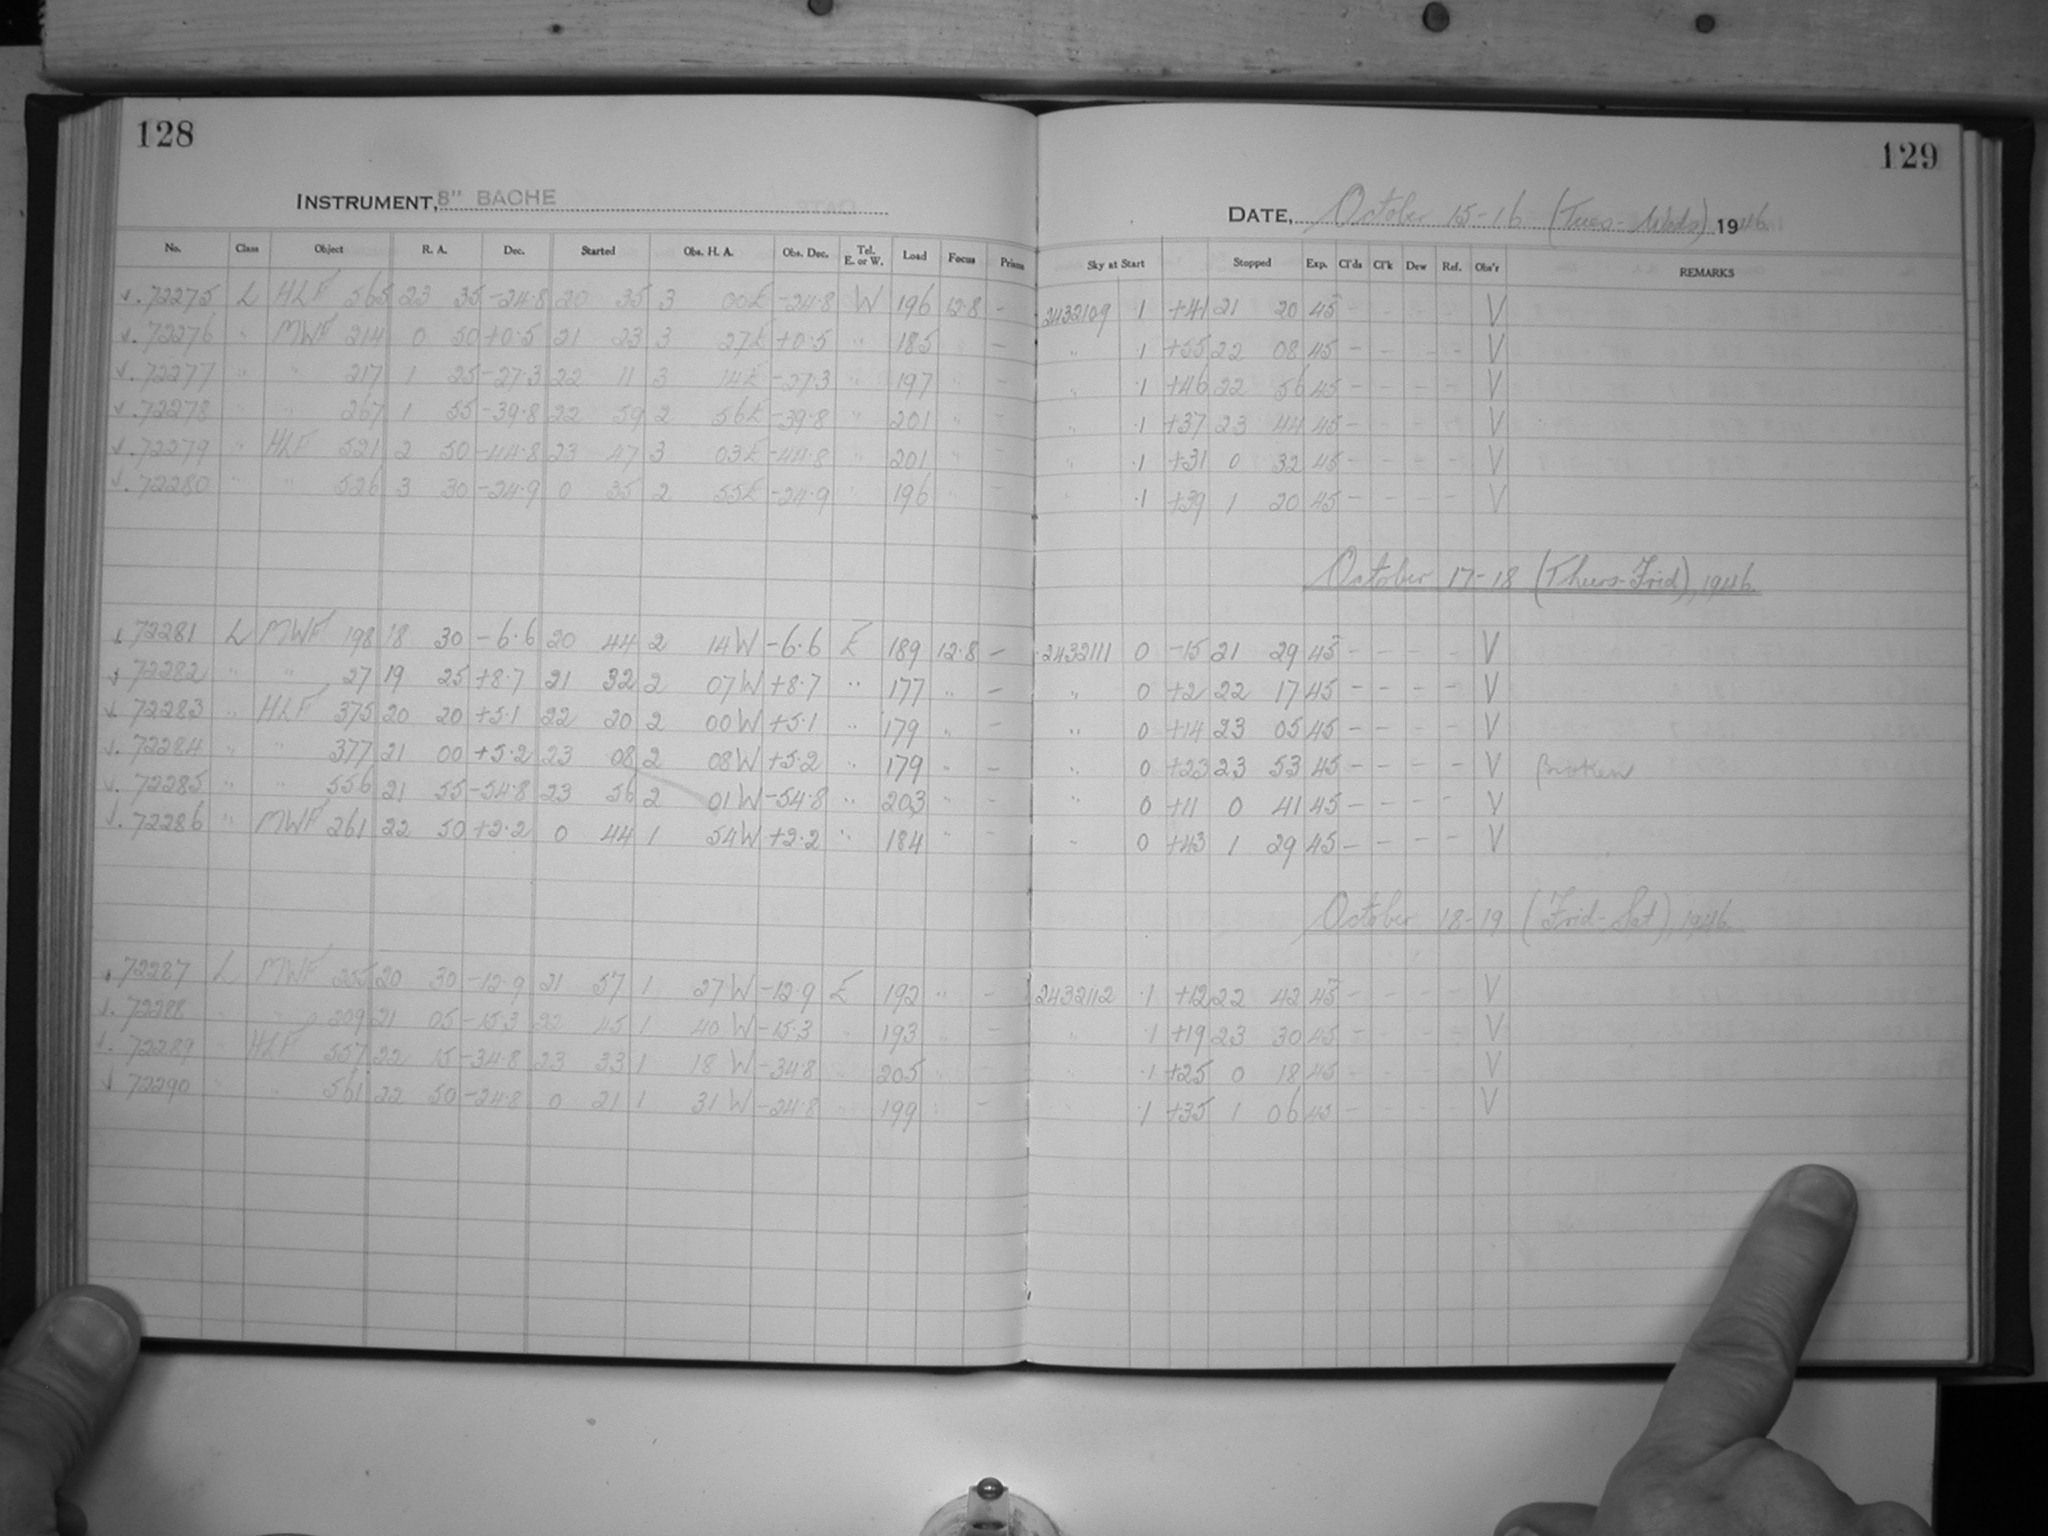 128
INSTRUMENT, 8" BACHE
No. Class Object R. A. Dec. Started Obs. H. A. Obs. Dec. Tel. E. or W. Load Focus Prisms
√. 72275 L HLF 565 23 35 -24.8 20 35 3 00E -24.8 W 196 12.8 -
√. 72276 " MWF 214 0 50 +0.5 21 23 3 27E +0.5 " 185 " -
√. 72277 " " 217 1 25 -27.3 22 11 3 14E -27.3 " 197 " -
√. 72278 " " 267 1 55 -39.8 22 59 2 56E -39.8 " 201 " -
√. 72279 " HLF 521 2 50 -44.8 23 47 3 03E -44.8 " 201 " -
√. 72280 " " 526 3 30 -24.9 0 35 2 55E -24.9 " 196 " -
√. 72281 L MWF 198 18 30 -6.6 20 44 2 14W -6.6 E 189 12.8 -
√ 72282 " " 27 19 25 +8.7 21 32 2 07W +8.7 " 177 " -
√. 72283 " HLF 375 20 20 +5.1 22 20 2 00W +5.1 " 179 " -
√. 72284 " " 377 21 00 +5.2 23 08 2 08W +5.2 " 179 " -
√. 72285 " " 556 21 55 -54.8 23 56 2 01W -54.8 " 203 " -
√. 72286 " MWF 261 22 50 +2.2 0 44 1 54W +2.2 " 184 " -
√ 72287 L MWF 20 30 -12.9 21 57 1 27W -12.9 E 192 " -
√. 72288 " " 209 21 05 -15.3 22 45 1 40W -15.3 " 193 " -
√. 72289 " HLF 557 22 15 -34.8 23 33 1 18W -34.8 " 205 " -
√ 72290 " " 561 22 50 -24.8 0 21 1 31W -24.8 " 199 " -
129
DATE, October 15-16 (Tues-Weds) 1946
Sky at Start Stopped Exp. Cl'ds Cl'k Dew Ref. Obs'r REMARKS
2432109 .1 +41 21 20 45 - - - - V
" .1 +55 22 08 45 - - - - V
" .1 +46 22 56 45 - - - - V
" .1 +37 23 44 45 - - - - V
" .1 +31 0 32 45 - - - - V
" .1 +39 1 20 45 - - - - V
October 17-18 (Thurs-Frid), 1946.
2432111 0 -15 21 29 45 - - - - V
" 0 +2 22 17 45 - - - - V
" 0 +14 23 05 45 - - - - V
" 0 +23 23 53 45 - - - - V Broken
" 0 +11 0 41 45 - - - - V
" 0 +43 1 29 45 - - - - V
October 18-19 (Frid-Sat), 1946.
2432112 .1 +12 22 42 45 - - - - V
" .1 +19 23 30 45 - - - - V
" .1 +25 0 18 45 - - - - V
" .1 +35 1 06 45 - - - - V